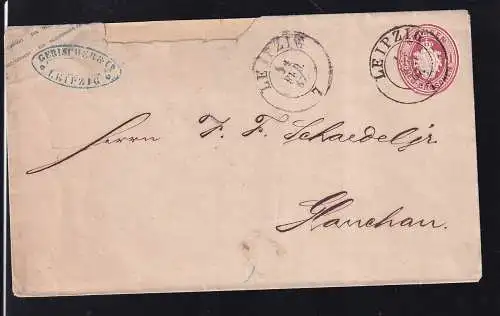 GERISCHER & Co
LEIPZIG
LEIPZIG
LEIPZIG
Herrn F. F. Schaedel jr.
Glauchau.